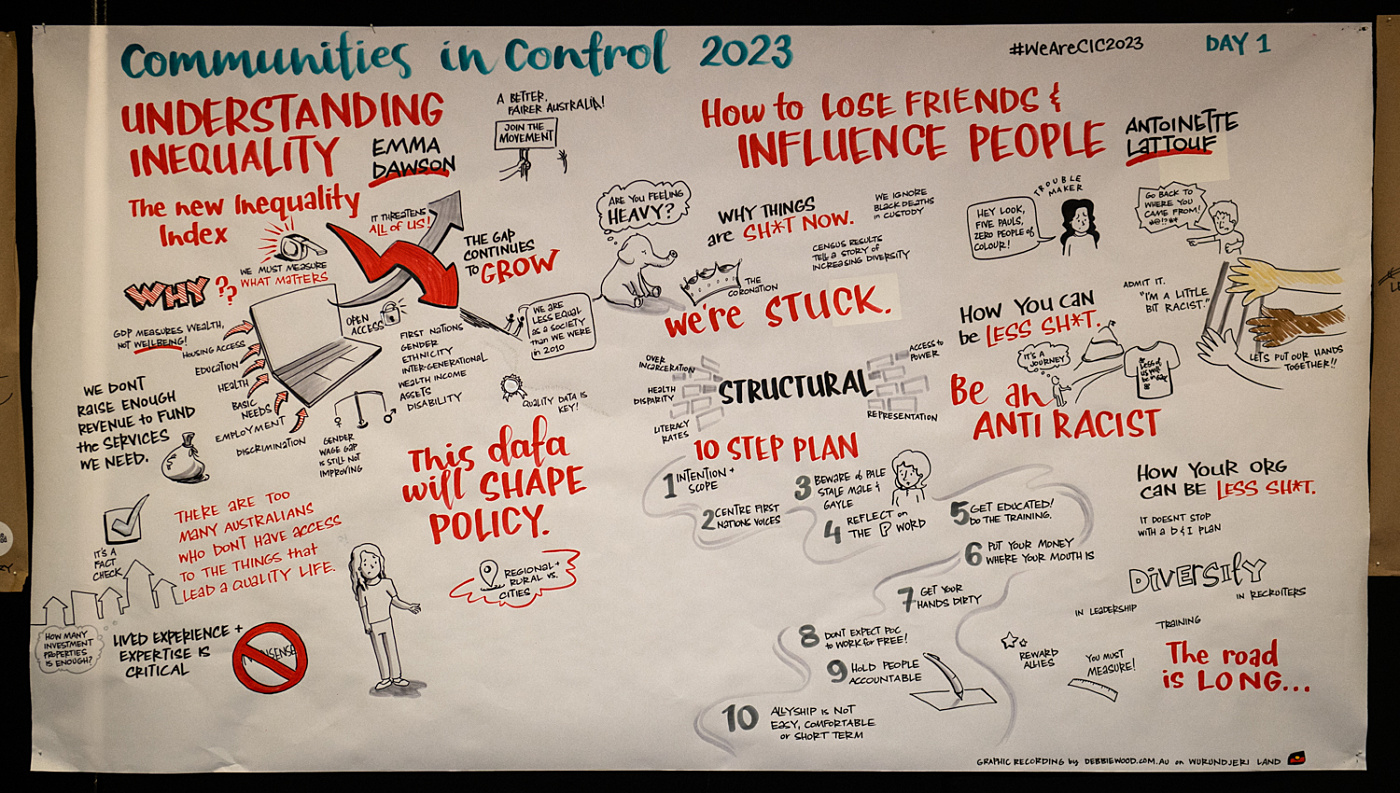 Communities in Control 2023
#WeAreCIC2023
DAY 1
UNDERSTANDING
INEQUALITY
EMMA
DAWSON
A BETTER,
FAIRER AUSTRALIA!
JOIN THE
MOVEMENT
The new Inequality
Index
IT THREATENS
ALL OF US!
WE MUST MEASURE
WHAT MATTERS
THE GAP
CONTINUES
TO GROW
WHY??
GDP MEASURES WEALTH,
NOT WELLBEING!
HOUSING ACCESS
EDUCATION
HEALTH
BASIC
NEEDS
EMPLOYMENT
DISCRIMINATION
OPEN
ACCESS
FIRST NATIONS
GENDER
ETHNICITY
INTER-GENERATIONAL
WEALTH INCOME
ASSETS
DISABILITY
WE ARE
LESS EQUAL
AS A SOCIETY
THAN WE WERE
IN 2010
GENDER
WAGE GAP
IS STILL NOT
IMPROVING
QUALITY DATA IS
KEY!
WE DON'T
RAISE ENOUGH
REVENUE to FUND
the SERVICES
WE NEED.
This data
will SHAPE
POLICY.
IT'S A
FACT
CHECK
THERE ARE TOO
MANY AUSTRALIANS
WHO DON'T HAVE ACCESS
TO THE THINGS that
LEAD A QUALITY LIFE.
REGIONAL +
RURAL VS.
CITIES
HOW MANY
INVESTMENT
PROPERTIES
IS ENOUGH?
LIVED EXPERIENCE +
EXPERTISE IS
CRITICAL
How to LOSE FRIENDS &
INFLUENCE PEOPLE
ANTOINETTE
LATTOUF
ARE YOU FEELING
HEAVY?
WHY THINGS
are SH*T NOW.
WE IGNORE
BLACK DEATHS
in CUSTODY
CENSUS RESULTS
TELL a STORY of
INCREASING DIVERSITY
THE
CORONATION
we're STUCK.
TROUBLE
MAKER
HEY LOOK,
FIVE PAULS,
ZERO PEOPLE of
COLOUR!
GO BACK TO
WHERE YOU
CAME FROM!
ADMIT IT.
"I'M A LITTLE
BIT RACIST."
LET'S PUT OUR HANDS
TOGETHER!!
HOW YOU CAN
be LESS SH*T.
IT'S A
JOURNEY
Be an
ANTI RACIST
OVER
INCARCERATION
HEALTH
DISPARITY
LITERACY
RATES
STRUCTURAL
ACCESS to
POWER
REPRESENTATION
10 STEP PLAN
1 INTENTION +
SCOPE
2 CENTRE FIRST
NATIONS VOICES
3 BEWARE of PALE
STALE MALE &
GAYLE
4 REFLECT on
THE P WORD
5 GET EDUCATED!
DO THE TRAINING.
6 PUT YOUR MONEY
WHERE YOUR MOUTH IS
7 GET YOUR
HANDS DIRTY
8 DON'T EXPECT POC
to WORK for FREE!
9 HOLD PEOPLE
ACCOUNTABLE
10 ALLYSHIP is NOT
EASY, COMFORTABLE
or SHORT TERM
HOW YOUR ORG
CAN BE LESS SH*T.
IT DOESN'T STOP
WITH a D&I PLAN
DIVERSITY
IN RECRUITERS
IN LEADERSHIP
TRAINING
REWARD
ALLIES
YOU MUST
MEASURE!
The road
is LONG...
GRAPHIC RECORDING by DEBBIEWOOD.COM.AU on WURUNDJERI LAND